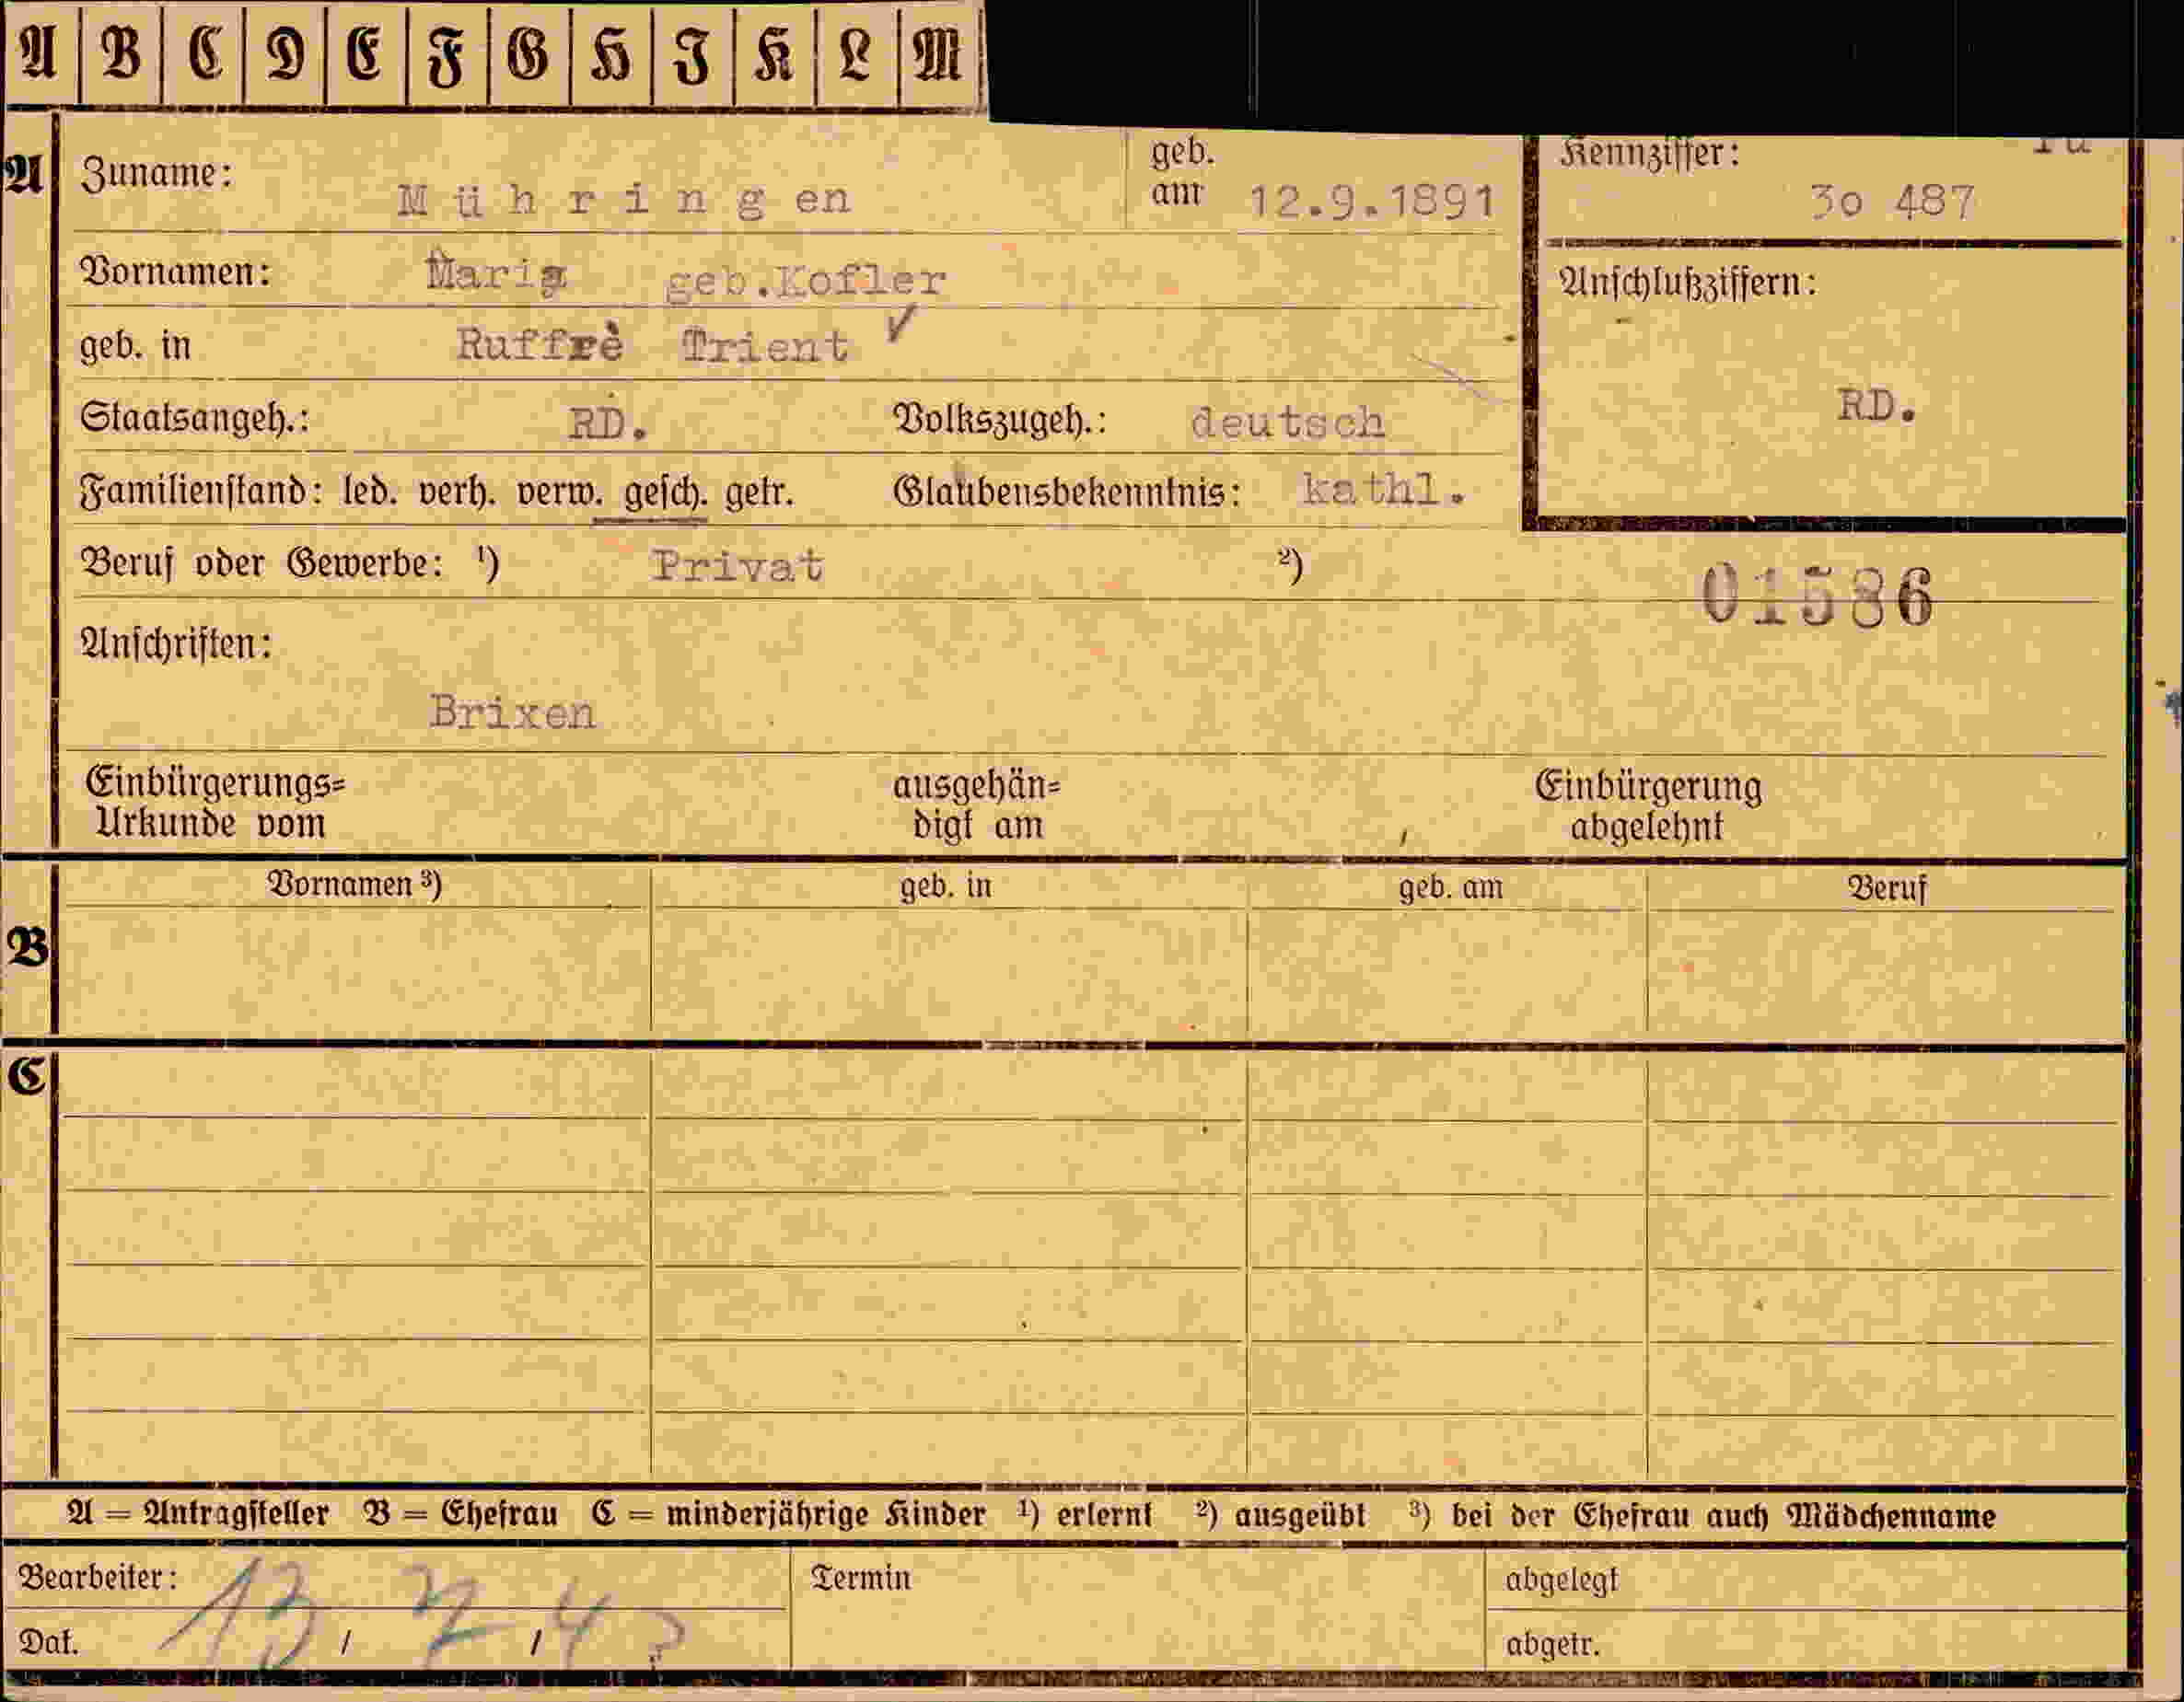 A B C D E F G H I K L M
A Zuname: Mühringen geb. am 12.9.1891 Kennziffer: 30 487
Vornamen: Maria geb.Kofler Anschlußziffern:
geb. in Ruffrè Trient ✓
Staatsangeh.: RD. Volkszugeh.: deutsch RD.
Familienstand: led. verh. verw. gesch. getr. Glaubensbekenntnis: kathl.
Beruf oder Gewerbe: ¹) Privat ²)
01586
Anschriften:
Brixen
Einbürgerungs= ausgehän= Einbürgerung
Urkunde vom digt am abgelehnt
Vornamen ³) geb. in geb. am Beruf
B
C
A = Antragsteller B = Ehefrau C = minderjährige Kinder ¹) erlernt ²) ausgeübt ³) bei der Ehefrau auch Mädchenname
Bearbeiter: Termin abgelegt
Dat. 13 / 7 / 43 abgetr.